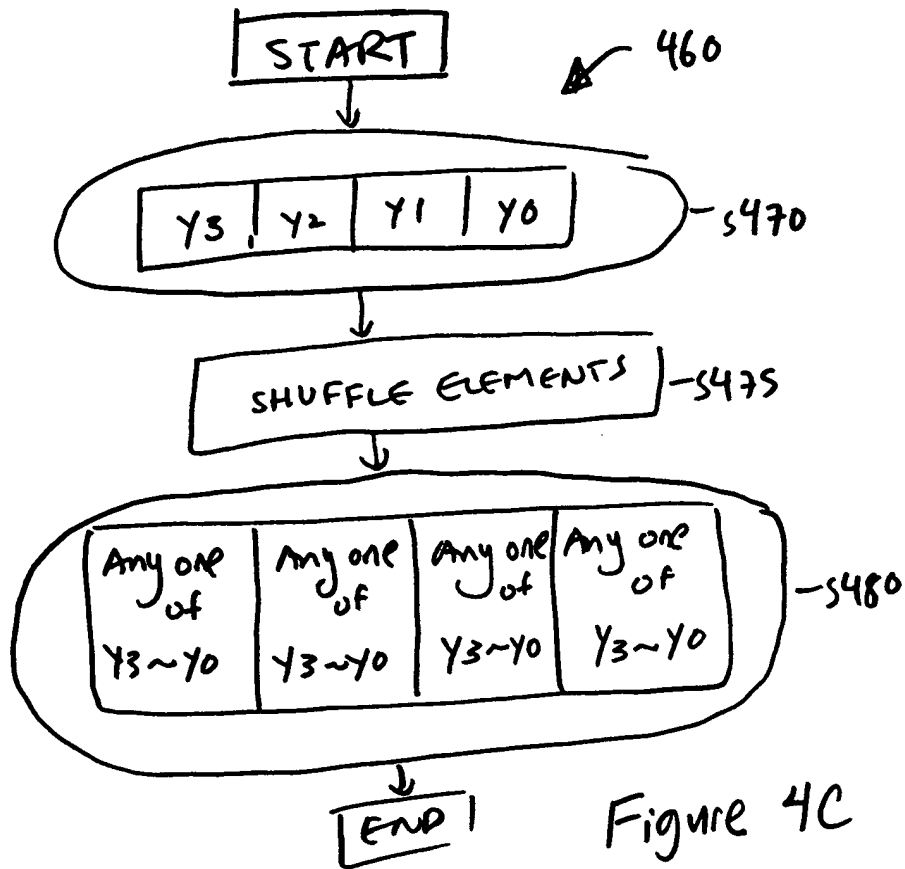 START
460
Y3 Y2 Y1 Y0
S470
SHUFFLE ELEMENTS
S475
Any one of Y3~Y0
Any one of Y3~Y0
Any one of Y3~Y0
Any one of Y3~Y0
S480
END
Figure 4C